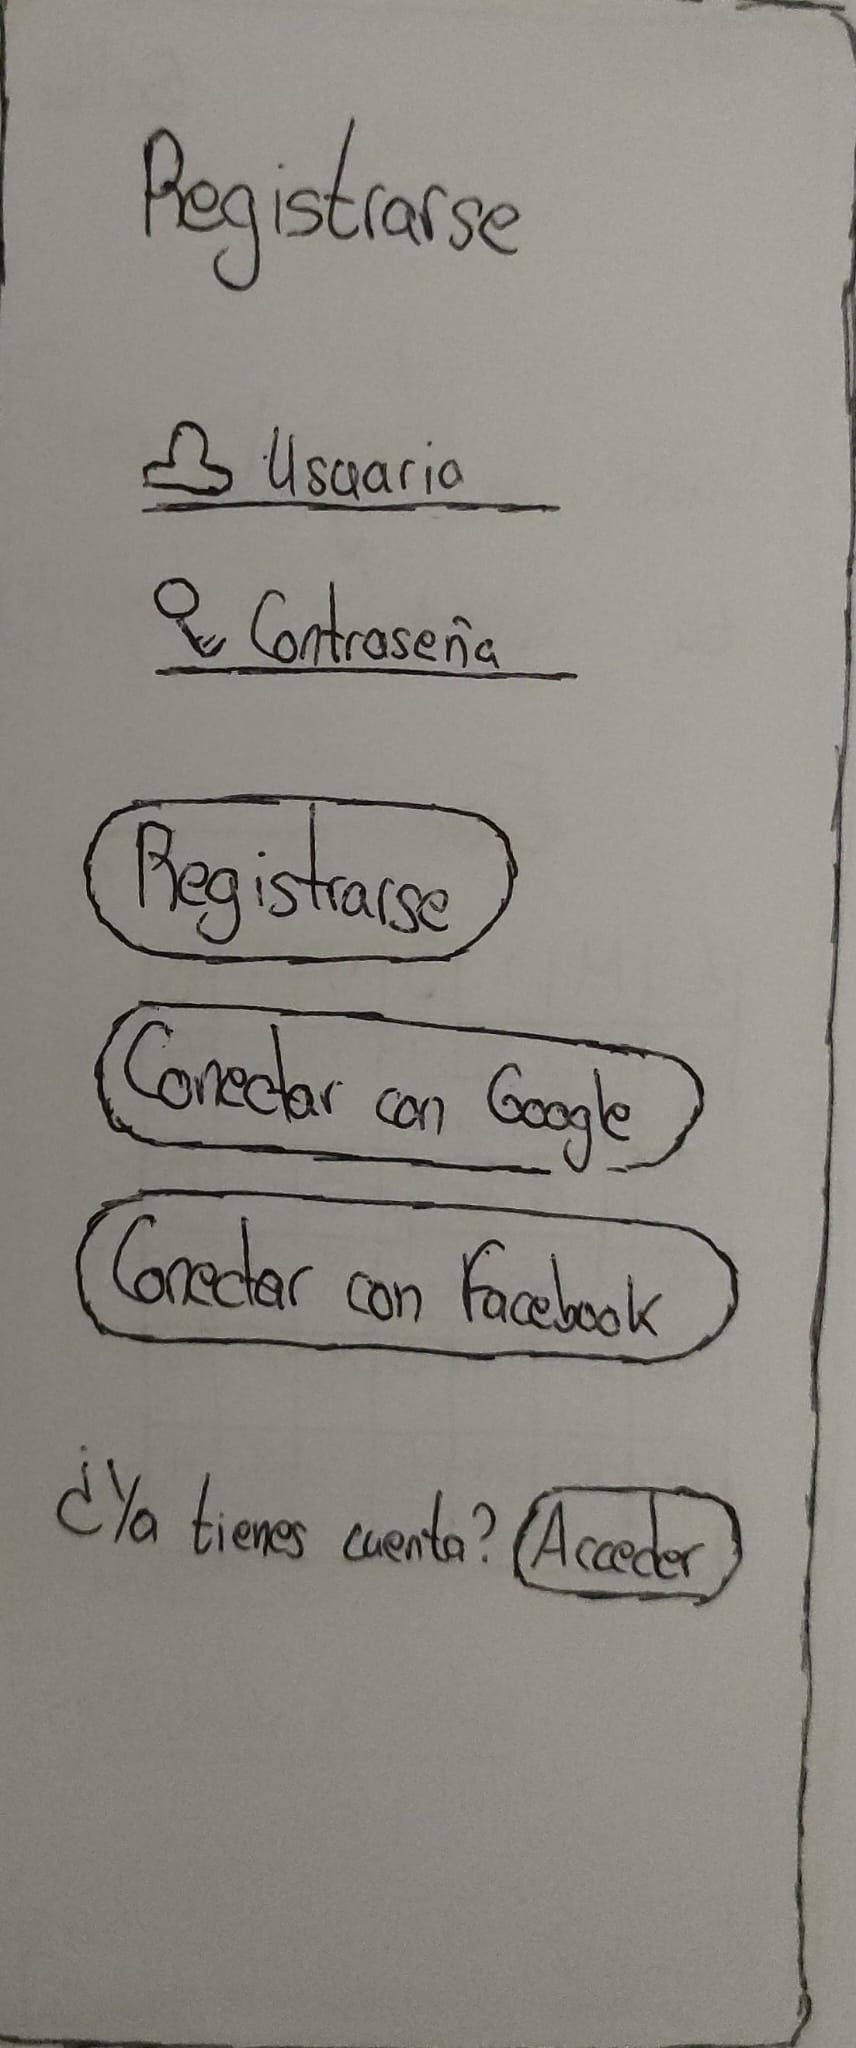 Registrarse
Usuario
Contraseña
Registrarse
Conectar con Google
Conectar con Facebook
¿Ya tienes cuenta? Acceder